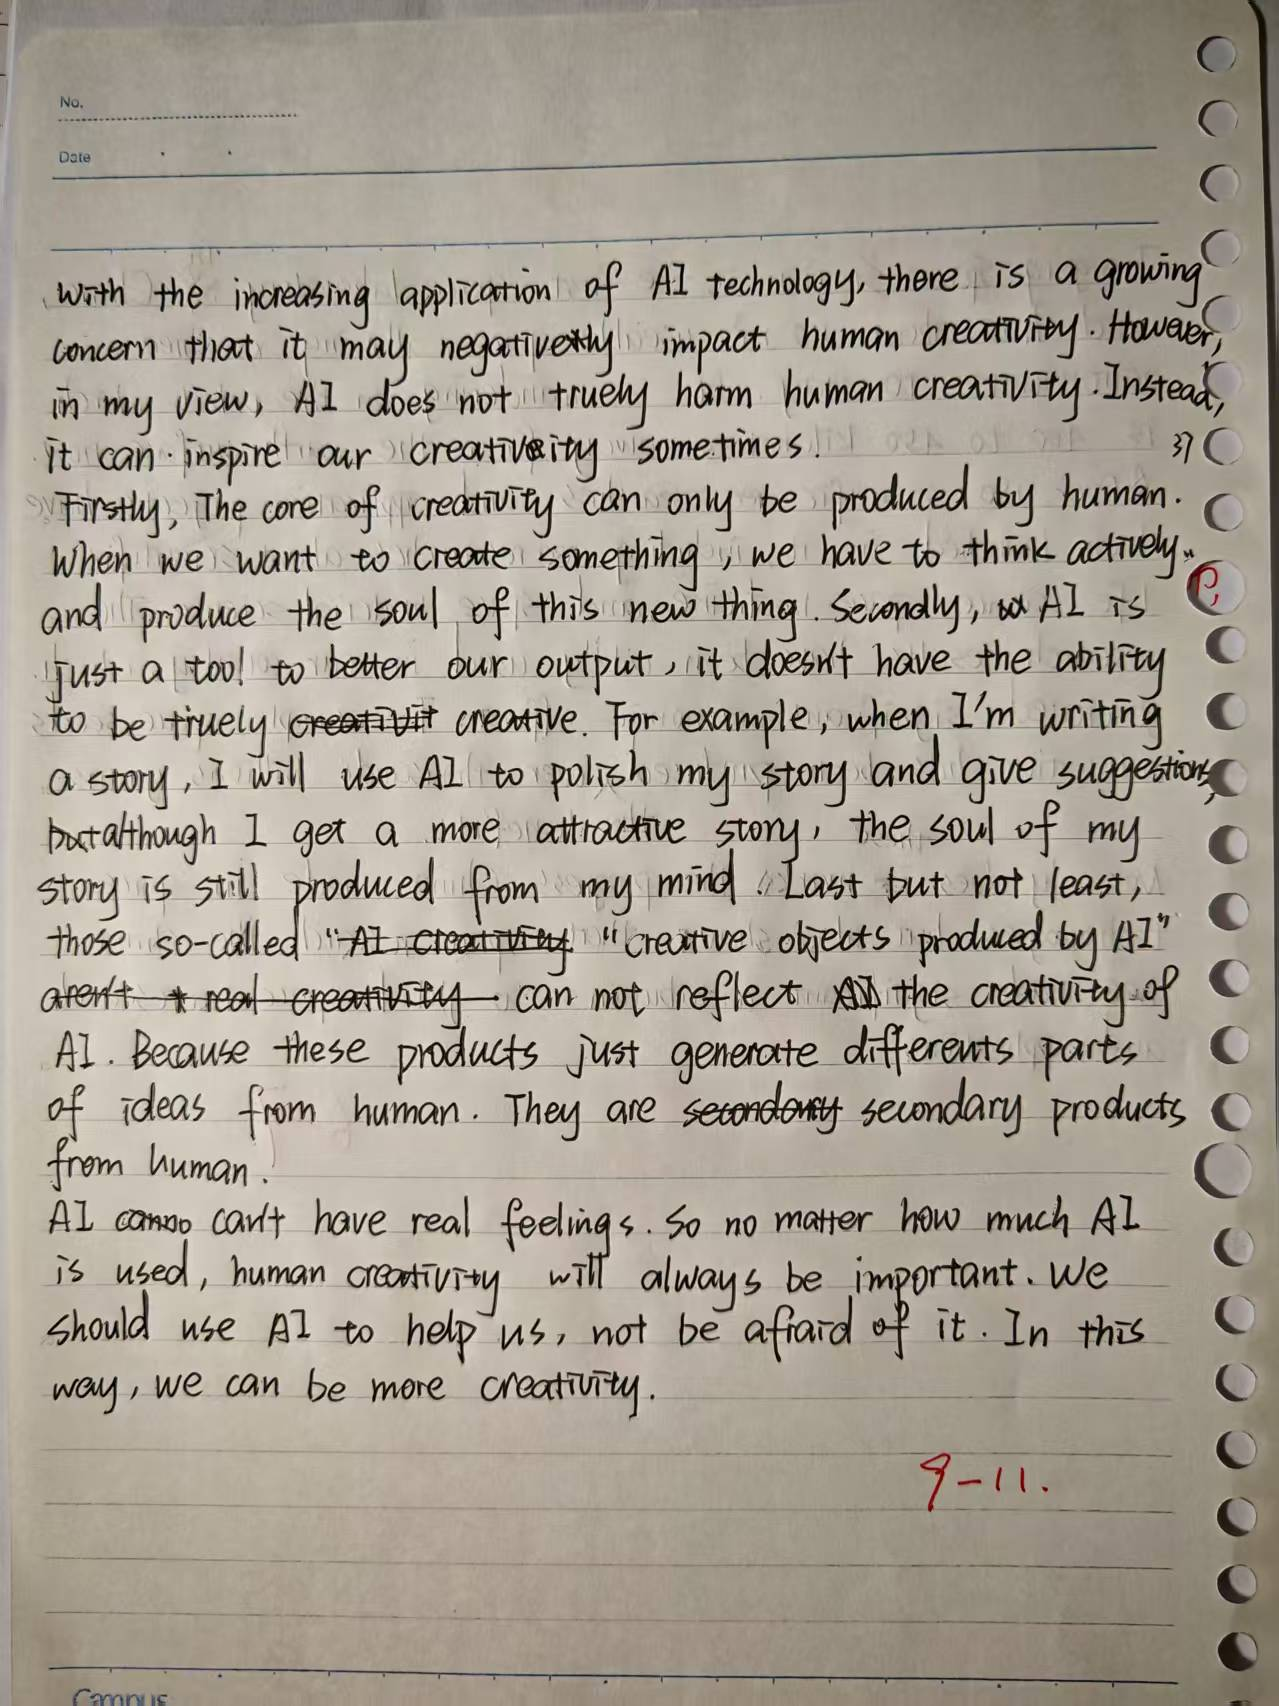 No.
Date
With the increasing application of AI technology, there is a growing
concern that it may negatively impact human creativity. However,
in my view, AI does not truely harm human creativity. Instead,
it can inspire our creativity sometimes. 37
Firstly, The core of creativity can only be produced by human.
When we want to create something, we have to think actively
and produce the soul of this new thing. Secondly, AI is
just a tool to better our output, it doesn't have the ability
to be truely creativit creative. For example, when I'm writing
a story, I will use AI to polish my story and give suggestions,
but although I get a more attractive story, the soul of my
story is still produced from my mind. Last but not least,
those so-called "AI creativity "creative objects produced by AI"
aren't real creativity can not reflect the creativity of
AI. Because these products just generate differents parts
of ideas from human. They are secondary secondary products
from human.
AI can't have real feelings. So no matter how much AI
is used, human creativity will always be important. We
should use AI to help us, not be afraid of it. In this
way, we can be more creativity.
9-11.
Campus